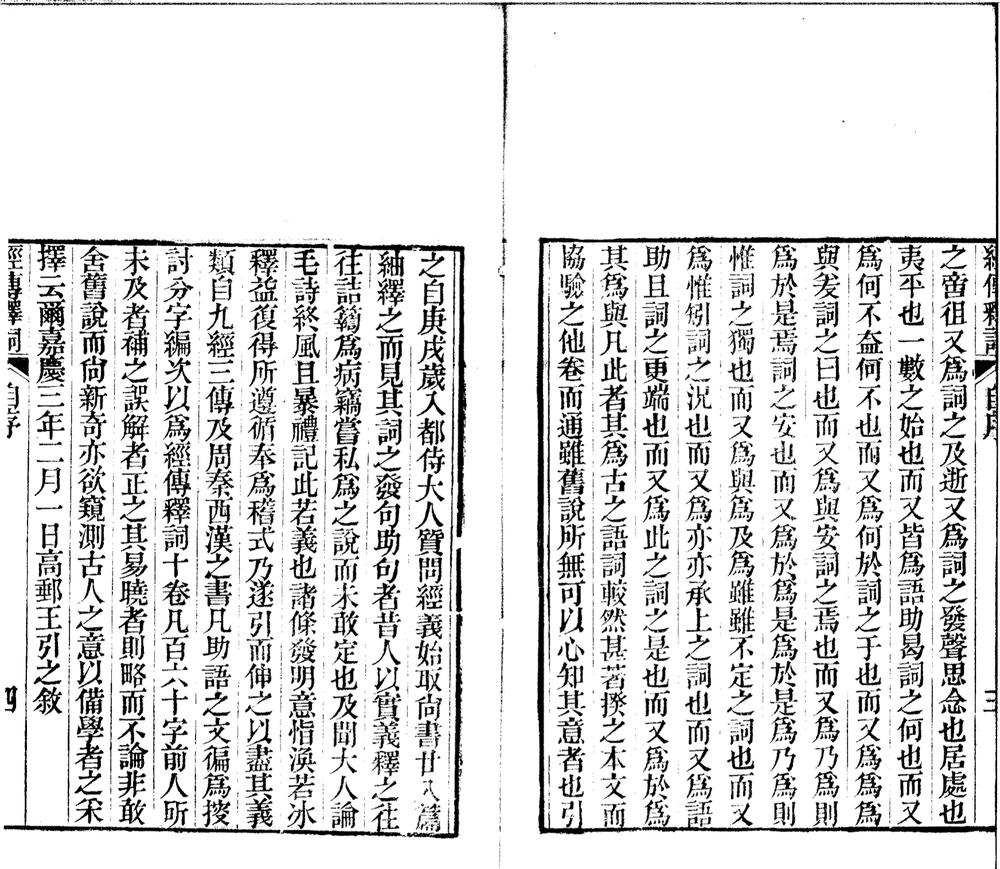 經傳釋詞 自序 三
之啻徂又爲詞之及逝又爲詞之發聲思念也居處也
夷平也一數之始也而又皆爲語助曷詞之何也而又
爲何不盍何不也而又爲何於詞之于也而又爲爲爲
與爰詞之曰也而又爲與安詞之焉也而又爲乃爲則
爲於是焉詞之安也而又爲於爲是爲於是爲乃爲則
惟詞之獨也而又爲與爲及爲雖雖不定之詞也而又
爲惟矧詞之況也而又爲亦亦承上之詞也而又爲語
助且詞之更端也而又爲此之詞之是也而又爲於爲
其爲與凡此者其爲古之語詞較然甚著揆之本文而
協驗之他卷而通雖舊說所無可以心知其意者也引
之自庚戌歲入都侍大人質問經義始取尙書廿八篇
紬繹之而見其詞之發句助句者昔人以實義釋之往
往詰𥷚爲病竊嘗私爲之說而未敢定也及聞大人論
毛詩終風且暴禮記此若義也諸條發明意恉渙若冰
釋益復得所遵循奉爲稽式乃遂引而伸之以盡其義
類自九經三傳及周秦西漢之書凡助語之文徧爲搜
討分字編次以爲經傳釋詞十卷凡百六十字前人所
未及者補之誤解者正之其易曉者則略而不論非敢
舍舊說而尙新奇亦欲窺測古人之意以備學者之采
擇云爾嘉慶三年二月一日高郵王引之敘
經傳釋詞 自序 四